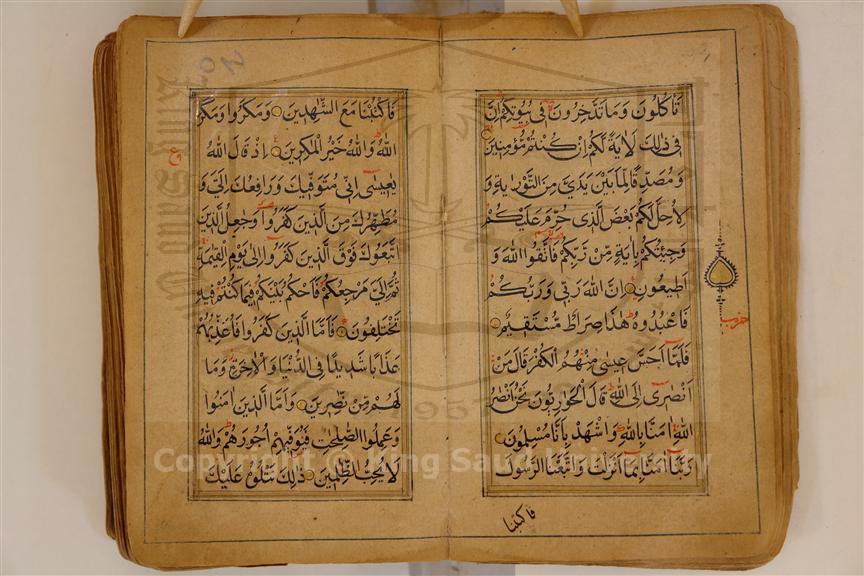 تَأْكُلُونَ وَمَا تَدَّخِرُونَ فِى بُيُوتِكُمْ اِنَّ
فِى ذٰلِكَ لَاٰيَةً لَكُمْ اِنْ كُنْتُمْ مُؤْمِنِينَ
وَمُصَدِّقًا لِمَا بَيْنَ يَدَىَّ مِنَ التَّوْرٰيةِ وَ
لِاُحِلَّ لَكُمْ بَعْضَ الَّذِى حُرِّمَ عَلَيْكُمْ
وَجِئْتُكُمْ بِاٰيَةٍ مِنْ رَبِّكُمْ فَاتَّقُوا اللهَ وَ
اَطِيعُونِ اِنَّ اللهَ رَبِّى وَرَبُّكُمْ
فَاعْبُدُوهُ هٰذَا صِرَاطٌ مُسْتَقِيمٌ
فَلَمَّا اَحَسَّ عِيسٰى مِنْهُمُ الْكُفْرَ قَالَ مَنْ
اَنْصَارِى اِلَى اللهِ قَالَ الْحَوَارِيُّونَ نَحْنُ اَنْصَارُ
اللهِ اٰمَنَّا بِاللهِ وَاشْهَدْ بِاَنَّا مُسْلِمُونَ
رَبَّنَا اٰمَنَّا بِمَا اَنْزَلْتَ وَاتَّبَعْنَا الرَّسُولَ
فاكتبنا
حزب
فَاكْتُبْنَا مَعَ الشّٰهِدِينَ وَمَكَرُوا وَمَكَرَ
اللهُ وَاللهُ خَيْرُ الْمٰكِرِينَ اِذْ قَالَ اللهُ
يٰعِيسٰى اِنِّى مُتَوَفِّيكَ وَرَافِعُكَ اِلَىَّ وَ
مُطَهِّرُكَ مِنَ الَّذِينَ كَفَرُوا وَجَاعِلُ الَّذِينَ
اتَّبَعُوكَ فَوْقَ الَّذِينَ كَفَرُوا اِلٰى يَوْمِ الْقِيٰمَةِ
ثُمَّ اِلَىَّ مَرْجِعُكُمْ فَاَحْكُمُ بَيْنَكُمْ فِيمَا كُنْتُمْ فِيهِ
تَخْتَلِفُونَ فَاَمَّا الَّذِينَ كَفَرُوا فَاُعَذِّبُهُمْ
عَذَابًا شَدِيدًا فِى الدُّنْيَا وَالْاٰخِرَةِ وَمَا
لَهُمْ مِنْ نٰصِرِينَ وَاَمَّا الَّذِينَ اٰمَنُوا
وَعَمِلُوا الصّٰلِحٰتِ فَيُوَفِّيهِمْ اُجُورَهُمْ وَاللهُ
لَا يُحِبُّ الظّٰلِمِينَ ذٰلِكَ نَتْلُوهُ عَلَيْكَ
Copyright © King Saud University